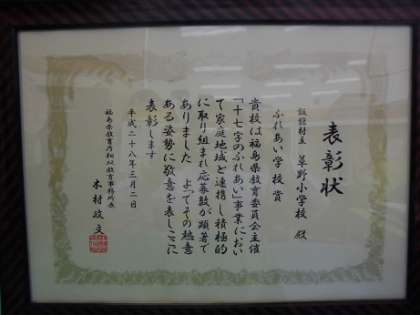 表彰状
飯舘村立 草野小学校 殿
ふれあい学校賞
貴校は福島県教育委員会主催
「十七字のふれあい」事業におい
て家庭地域と連携し積極的
に取り組まれ応募数が顕著で
ありました よってその熱意
ある姿勢に敬意を表しここに
表彰します
平成二十八年三月二日
福島県教育庁相双教育事務所長
木村政文